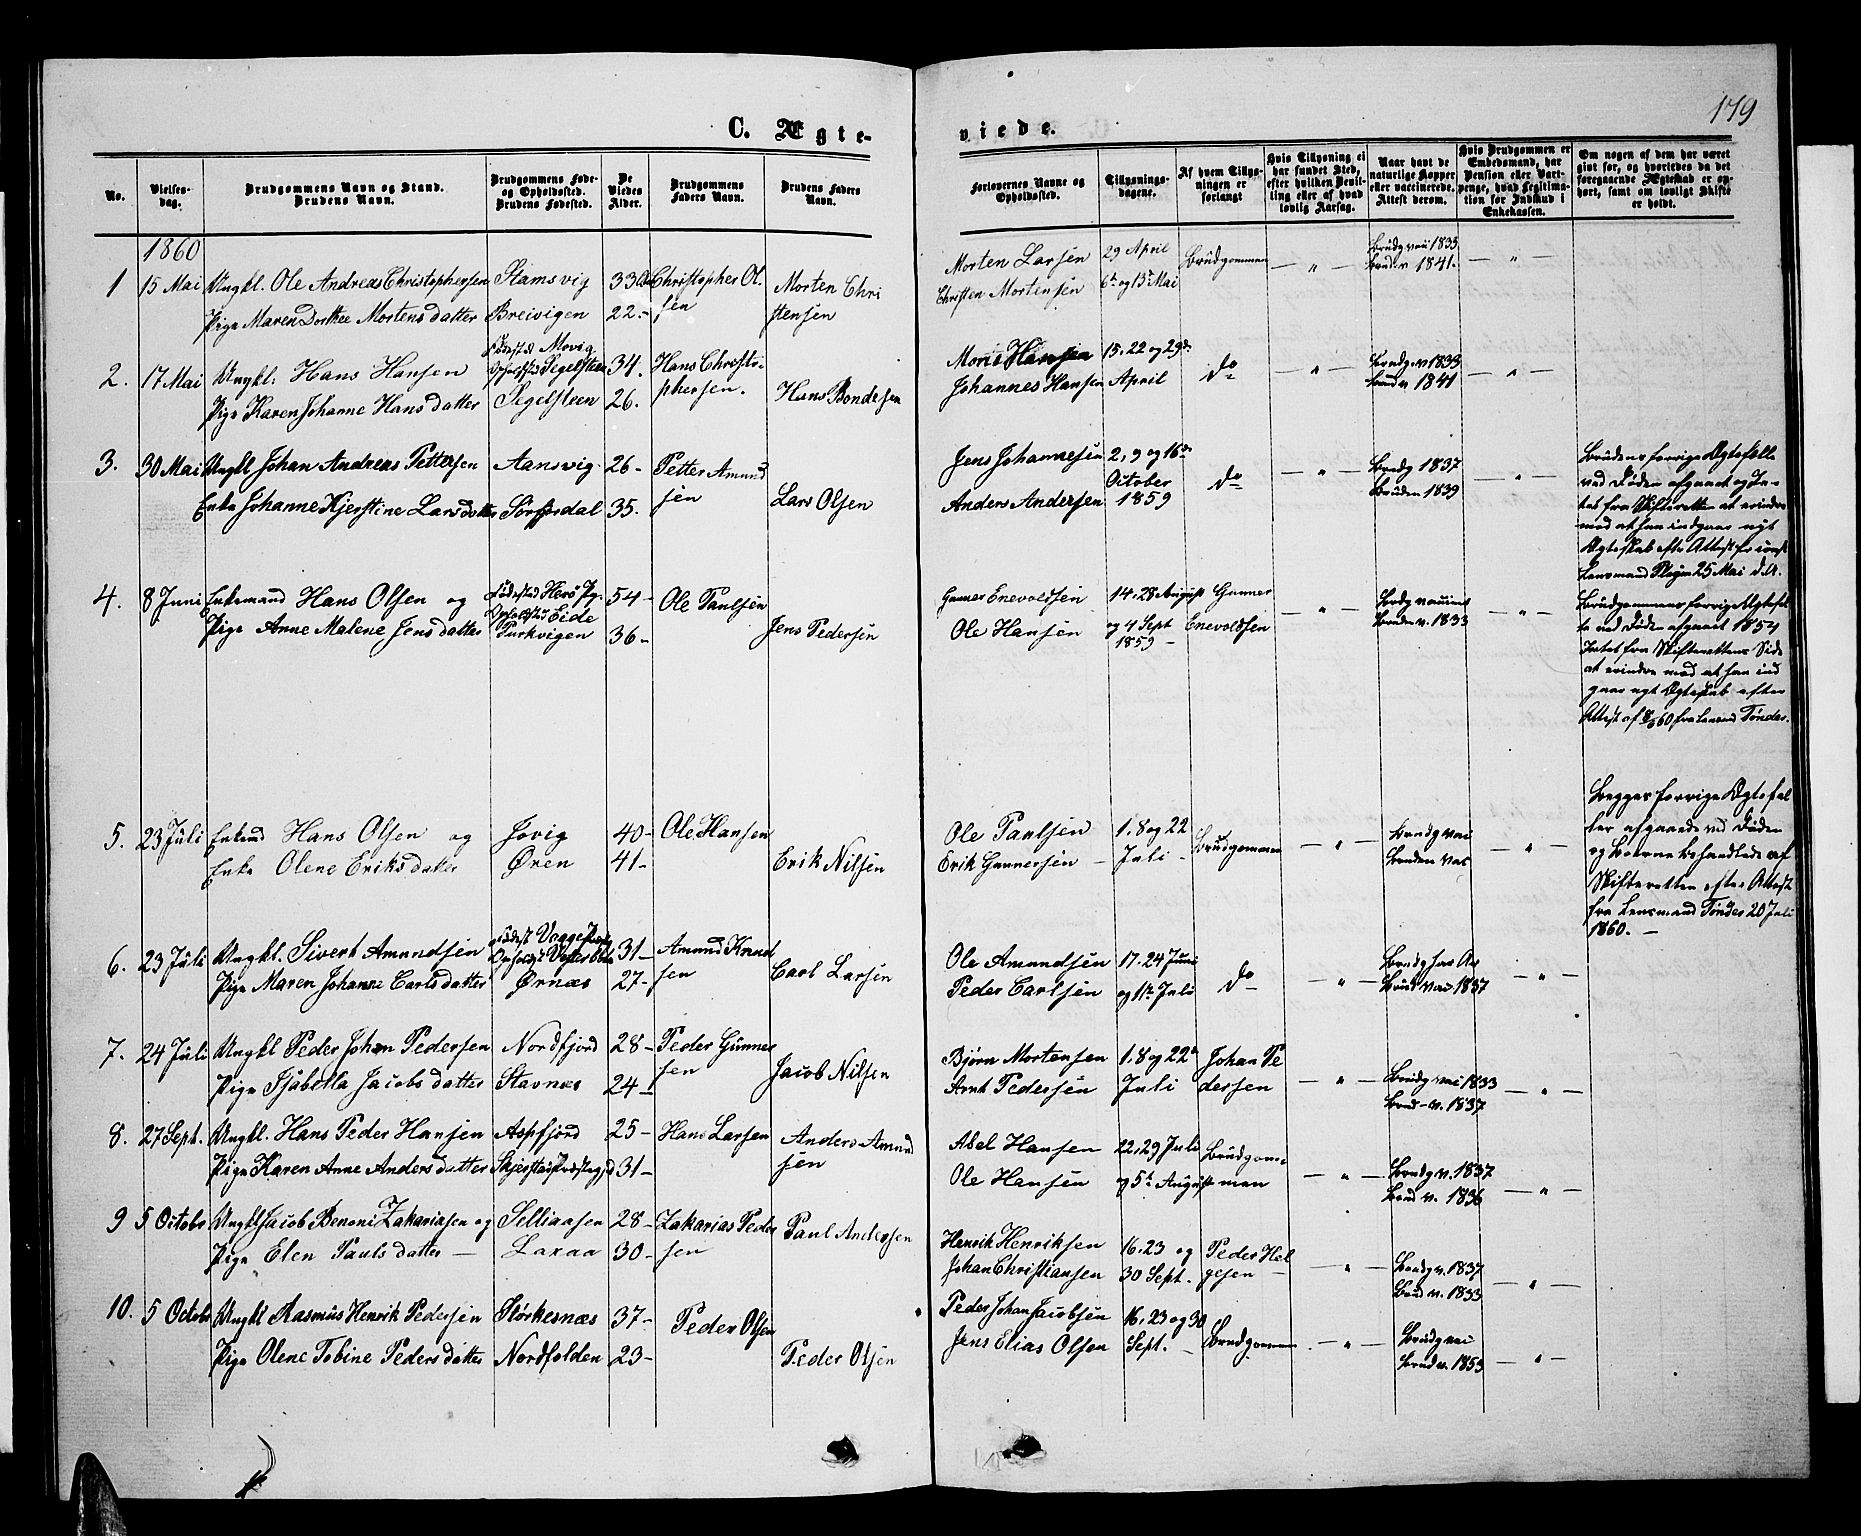 179
C. Ægte- viede.
No.
Vielses-dag.
Brudgommens Navn og Stand. Brudens Navn.
Brudgommens Føde- og Opholdssted. Brudens Fødested.
De Viedes Alder.
Brudgommens Faders Navn.
Brudens Faders Navn.
Forlovernes Navne og Opholdssted.
Tillysnings-dagene.
Af hvem Tillysningen er forlangt
Hvis Tillysning ei har fundet Sted, efter hvilken Bevilling eller af hvad lovlig Aarsag.
Naar havt de naturlige Kopper eller vaccinerede. Attest derom.
Hvis Brudgommen er Embedsmand, har Pension eller Vartpenge, hvad Legitimation for Indskud i Enkekassen.
Om nogen af dem har været givt før, og hvorledes da det foregaaende Ægteskab er ophørt, samt om lovligt Skifte er holdt.
1860
1 15 Mai Ungkl. Ole Andreas Christophersen Stamsvig 33 Christopher Ol- Morten Chri Morten Larsen 29 April Brudgommen — " — Brudg vac 1833 — " —
Pige Maren Dorthee Mortensdatter Breivigen 22 - sen stensen Christen Mortensen 6te og 13de Mai Brud v. 1841.
2. 17 Mai Ungkl. Hans Hansen Fødested Movig Opholdsted Segelsteen 34. Hans Christo- Hans Bondesen Hansen 15. 22 og 29de do — " — Brudg v 1833 — " —
Pige Karen Johanne Hansdatter Segelsteen 26. phersen. Johannes Hansen April Brud v. 1841
3. 30 Mai Ungkl Johan Andreas Pettersen Aansvig 26 - Petter Amund Lars Olsen Jens Johannesen 2, 9 og 16de do — " — Brudg 1837 — " — Brudens forrige Ægtefælle
Enke Johanne Kjerstine Larsdatter Sørfjordal 35. sen Anders Andersen October 1859 Bruden 1839 ved Døden afgaaet og In-
tet fra Skifteretten at erindre
mod at hun indgaar nyt
Ægteskab efter Attest fra
Lensmand 25 Mai d. A.
4. 8 Juni Enkemand Hans Olsen og Fødested Herø Pg. Opholdsted Eide 54 - Ole Paulsen Jens Pedersen Gunner Enevoldsen 14. 28 August Gunner — " — — " — Brudgommens forrige Ægtefæl
Pige Anne Malene Jensdatter Purkvigen 36 - Ole Hansen og 4 Sept 1859 - Enevoldsen Bruden v. 1833 le ved Døden afgaaet 1854
Intet fra Skifterettens Side
at erindre mod at han ind
gaar nyt Ægteskab efter
Attest af 60 fra Lensmd Tønder.
5. 23 Juli Enkemd Hans Olsen og Jovig 40 - Ole Hansen Erik Nilsen Ole Paulsen 1. 8 og 22 Brudgommen — " — Brudg vac — " — Begges forrige Ægtefæl
Enke Olene Eriksdatter Øren 41 - Erik Gunnersen - Juli - Bruden vac ler afgaaede ved Døden
og Boerne behandlede af
Skifteretten efter Attest
fra Lensmand Tønder 20 Juli
1860. -
6. 23 Juli Ungkl. Sivert Amundsen 31 - Amund Knud Carl Larsen Ole Amundsen 17. 24 Juni do — " — — " —
Pige Maren Johanne Carlsdatter Ørnæs 27 - sen Peder Carlsen og 1te Juli Brud vac 1837
7. 24 Juli Ungkl Peder Johan Pedersen Nordfjord 28 - Peder Gunner Jacob Nilsen Bjørn Mortensen 1. 8 og 22de Johan Pe — " — Brudg vac 1833 — " —
Pige Isabella Jacobsdatter Stavnæs 24 - sen Arnt Pedersen Juli dersen Brud - v. 1837
8. 27 Sept. Ungkl. Hans Peder Hansen Aspfjord 25 - Hans Larsen Anders Amund Abel Hansen 22, 29 Juli Brudgom- — " — Brudg v. 1837 — " —
Pige Karen Anne Andersdatter Skjerstad Præstegjd 31 - sen Ole Hansen og 5te August men Brud v. 1836
9 5 Octobr Ungkl Jacob Benoni Zakariasen og Selliaasen 28 - Zakarias Peder Paul Andersen Henrik Henriksen 16. 23 og Peder Hel — " — Brudg v. 1837 — " —
Pige Elen Paulsdatter - Laxaa 30 - sen Johan Christiansen 30 Sept. gesen Brud v. 1833
10. 5 Octobr Ungkl Rasmus Henrik Pedersen Størkesnæs 37 - Peder Olsen Peder Olsen Peder Johan Jacobsen 16, 23 og 30 Brudgommen — " — Brudg vac — " —
Pige Olene Tobine Pedersdatter Nordfolden 23 - Jens Elias Olsen Sept. - Brud v. 1853